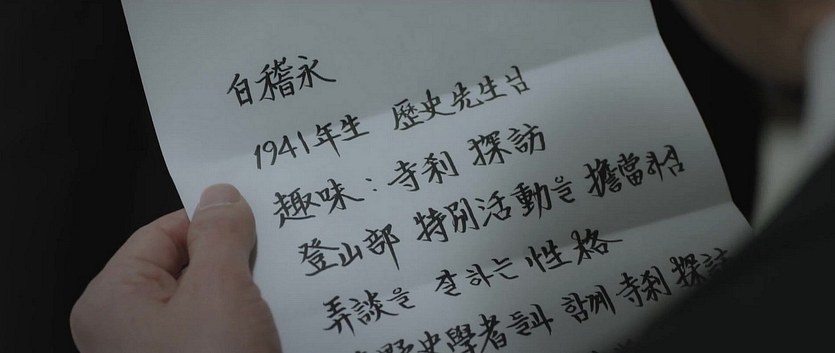 白稽永
1941年生 歷史先生님
趣味 : 寺刹 探訪
登山部 特別活動을 擔當하심
弄談을 잘하는 性格
野史學者들과 함께 寺刹 探訪